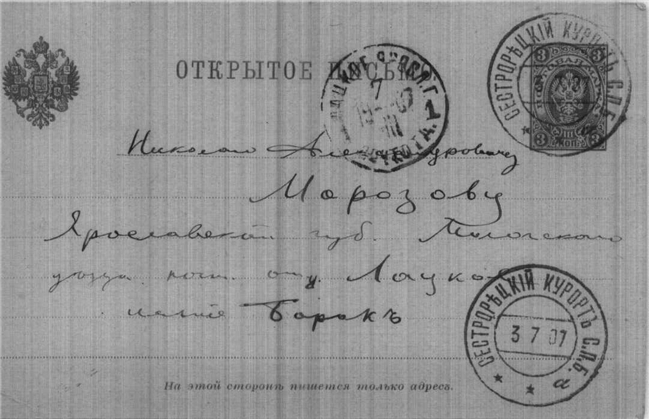 ОТКРЫТОЕ ПИСЬМО
СЕСТРОРѢЦКІЙ КУРОРТЪ С.П.Б.
а
3 3
3 КОП. 3
7
1
Николаю Александровичу
Морозову
Ярославской губ. Мологского
уѣзда почт. отд. Лацкое
имѣніе Борокъ
СЕСТРОРѢЦКІЙ КУРОРТЪ С.П.Б.
3 7 07
а
На этой сторонѣ пишется только адресъ.